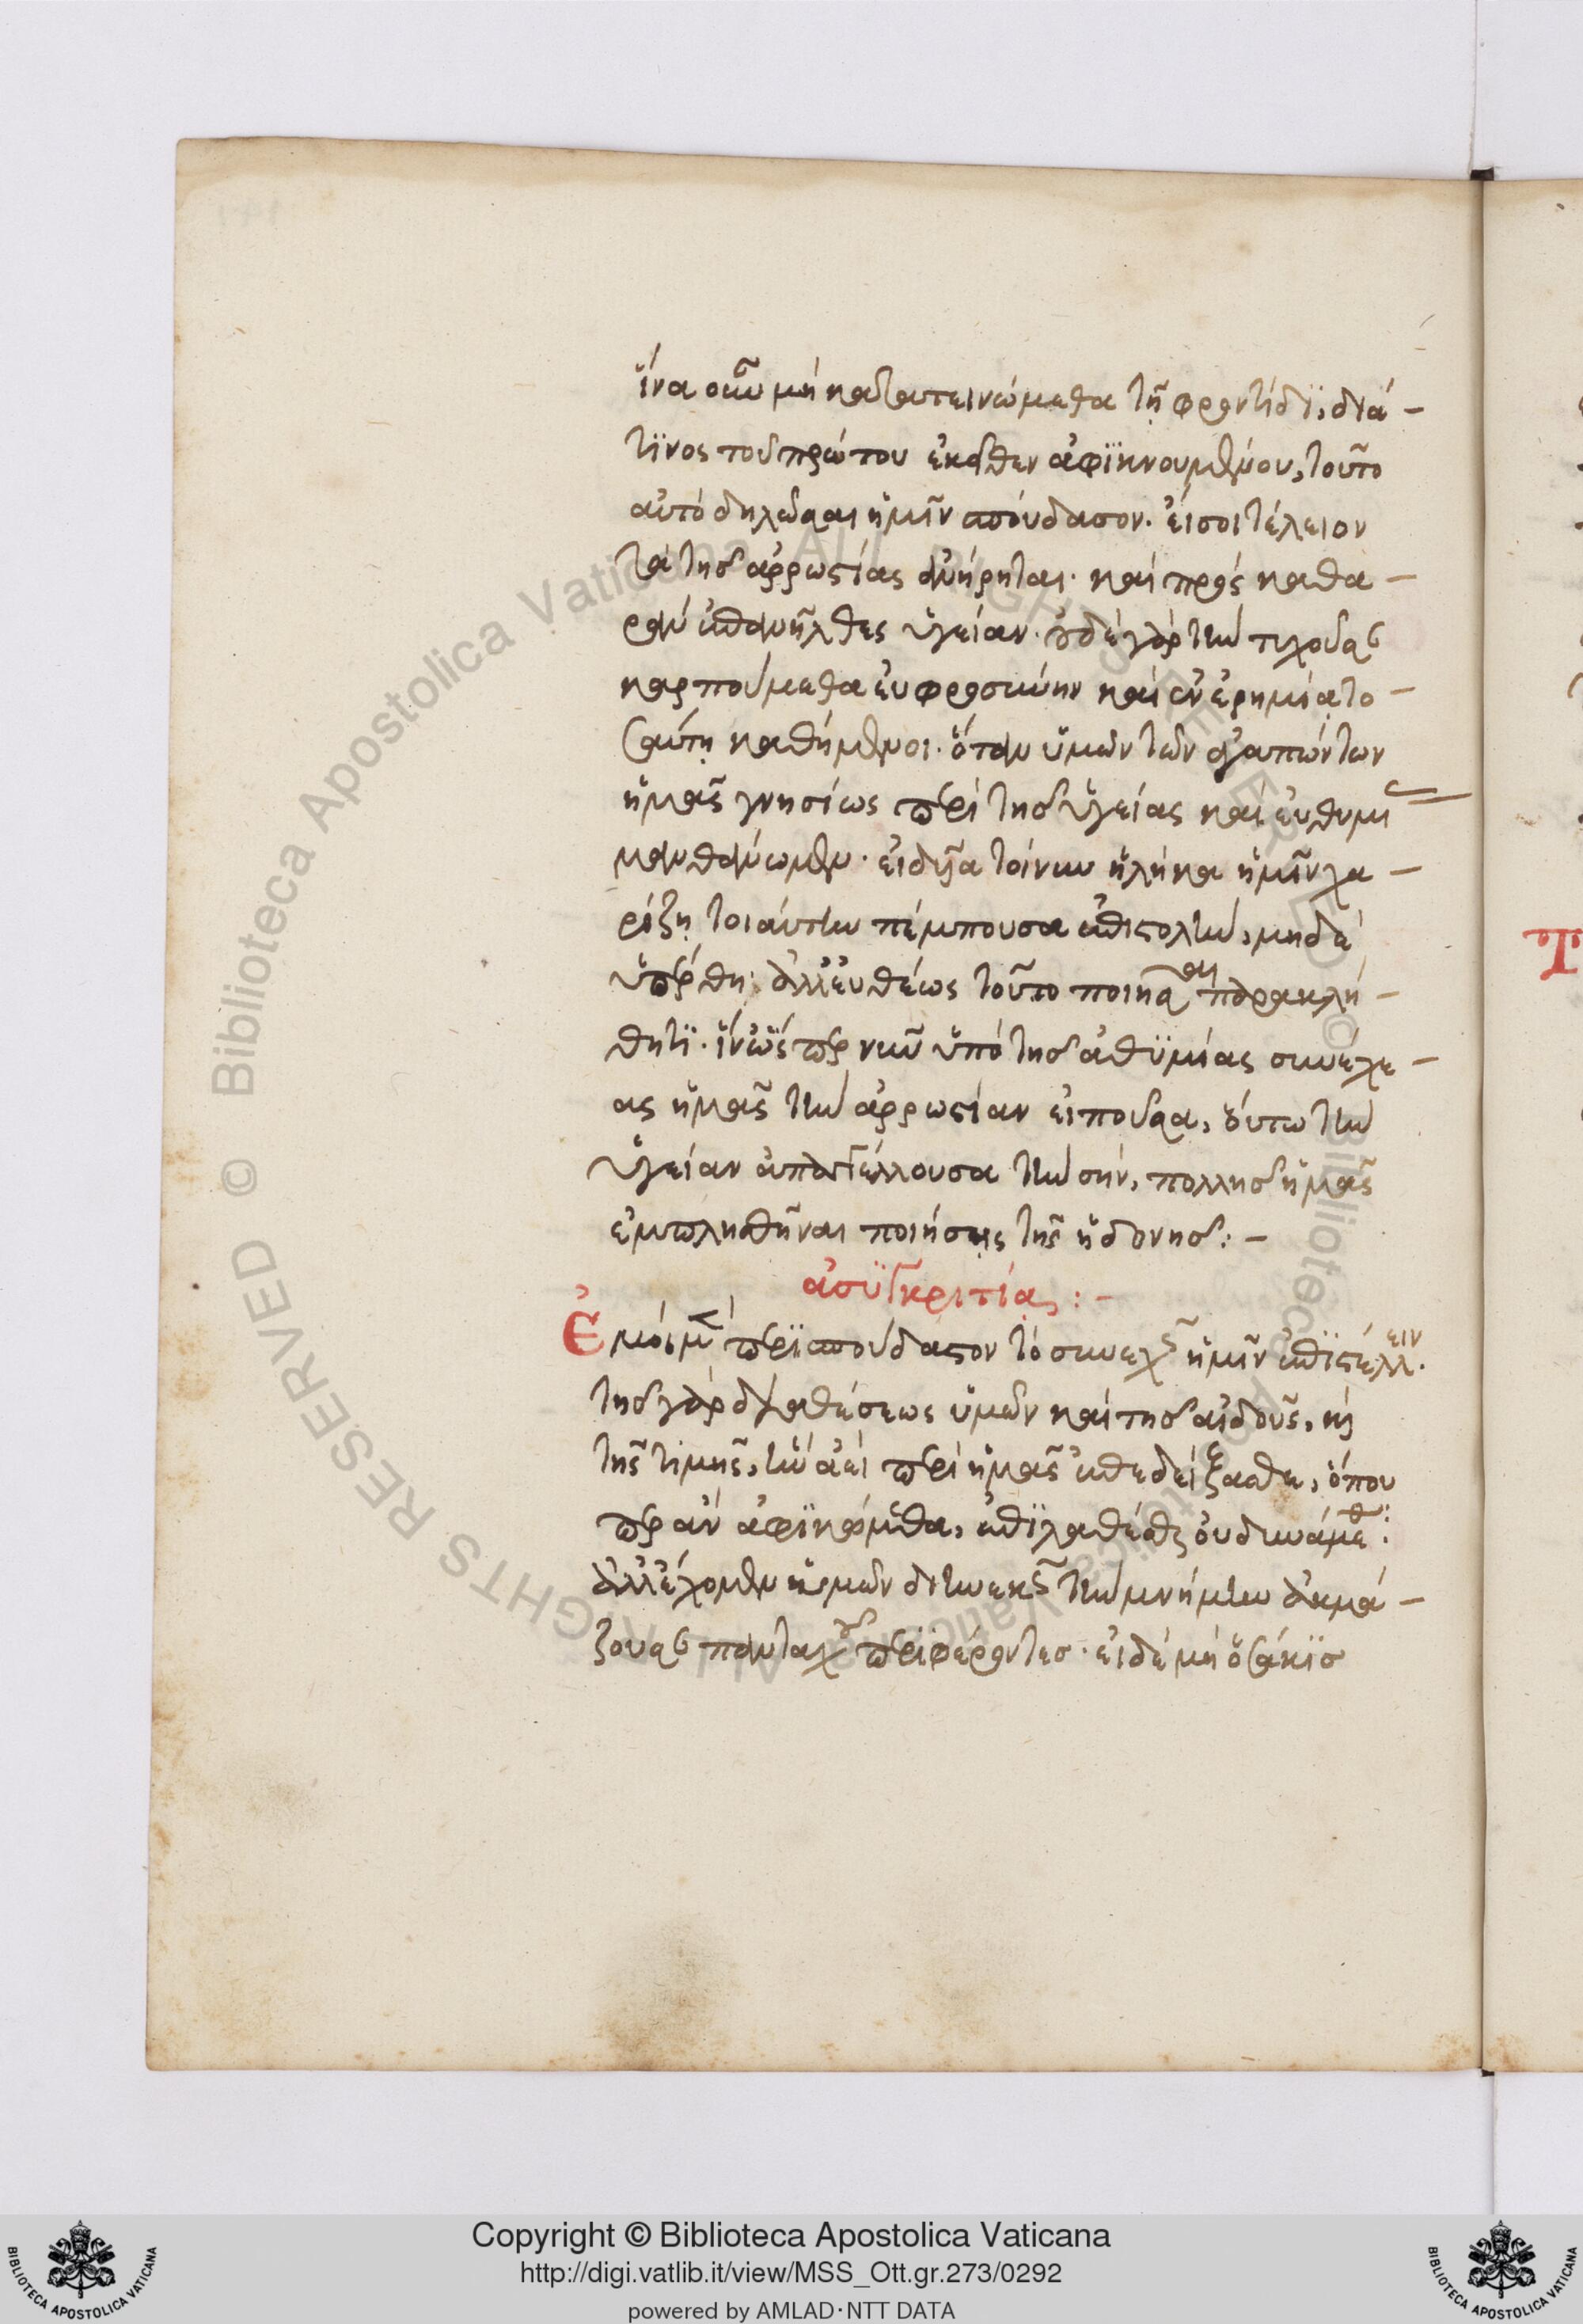 ἵνα οὖν μὴ κατατεινώμεθα τῆ φροντίδϊ, διά -
τϊνος τοῦ πρώτου ἐκεῖθεν ἀφϊκνουμένου, τοῦτο
αὐτὸ δηλῶσαι ἡμῖν σπούδασον. εἴ σοι τέλειον
τὰ τῆς ἀρρωστίας ἀνήρηται. καὶ πρὸς καθα -
ρὰν ἐπανῆλθες ὑγείαν. οὐδὲ γὰρ τὴν τυχοῦσαν
καρπούμεθα εὐφροσύνην καὶ ἐν ἐρημία το -
σαύτη καθήμενοι. ὅταν ὑμῶν τῶν ἀγαπώντων
ἡμᾶς γνησίως περὶ τῆς ὑγείας καὶ εὐθυμί
μανθάνωμεν. εἰδυῖα τοίνυν ἡλήκα ἡμῖν χα -
ρίζη τοιαύτην πέμπουσα ἐπιστολὴν, μηδὲ
ὑπέρθη. ἀλλ' εὐθέως τοῦτο ποιῆσαι παρακλή -
θητϊ. ἵν' ὥσπερ νῦν ὑπὸ τῆς ἀθϋμίας συνέχε -
ας ἡμᾶς τὴν ἀρρωστίαν εἰποῦσα, οὕτω τὴν
ὑγείαν ἀπαγγέλλουσα τὴν σήν, πολλῆς ἡμᾶς
ἐμπλησθῆναι ποιήσης τῆς ἡδονῆς: -
ἀσϋγκριτία: -
Ἐμοὶ μὲν περϊσπούδαστον τὸ συνεχῶς ἡμῖν ἐπϊστέλλειν.
τῆς γὰρ διαθέσεως ὑμῶν καὶ τῆς αἰδοῦς, καὶ
τῆς τιμῆς, ἣν ἀεὶ περὶ ἡμᾶς ἐπεδείξασθε, ὅπου
περ ἂν ἀφϊκώμεθα, ἐπϊλαθέσθαι οὐ δυνάμεθα:
ἀλλ' ἔχομεν ὑμῶν διηνεκῶς τὴν μνήμην ἀκμά -
ζουσαν πανταχοῦ περϊφέροντες. εἰ δὲ μὴ ὁσάκϊς